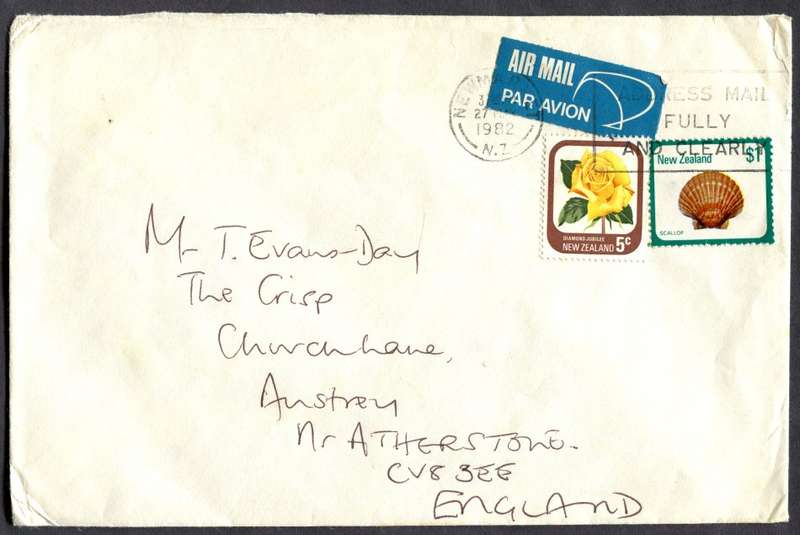 AIR MAIL
PAR AVION
NEWMA
27
1982
N.Z
ADDRESS MAIL
FULLY
AND CLEARLY
DIAMOND JUBILEE
NEW ZEALAND 5c
New Zealand $1
SCALLOP
Mr T. Evans-Day
The Crisp
Church Lane,
Austrey
Nr ATHERSTONE.
CV8 3EE
ENGLAND